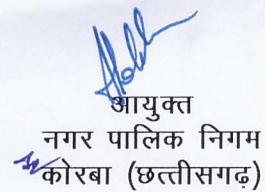 आयुक्त
नगर पालिक निगम
कोरबा (छत्तीसगढ़)